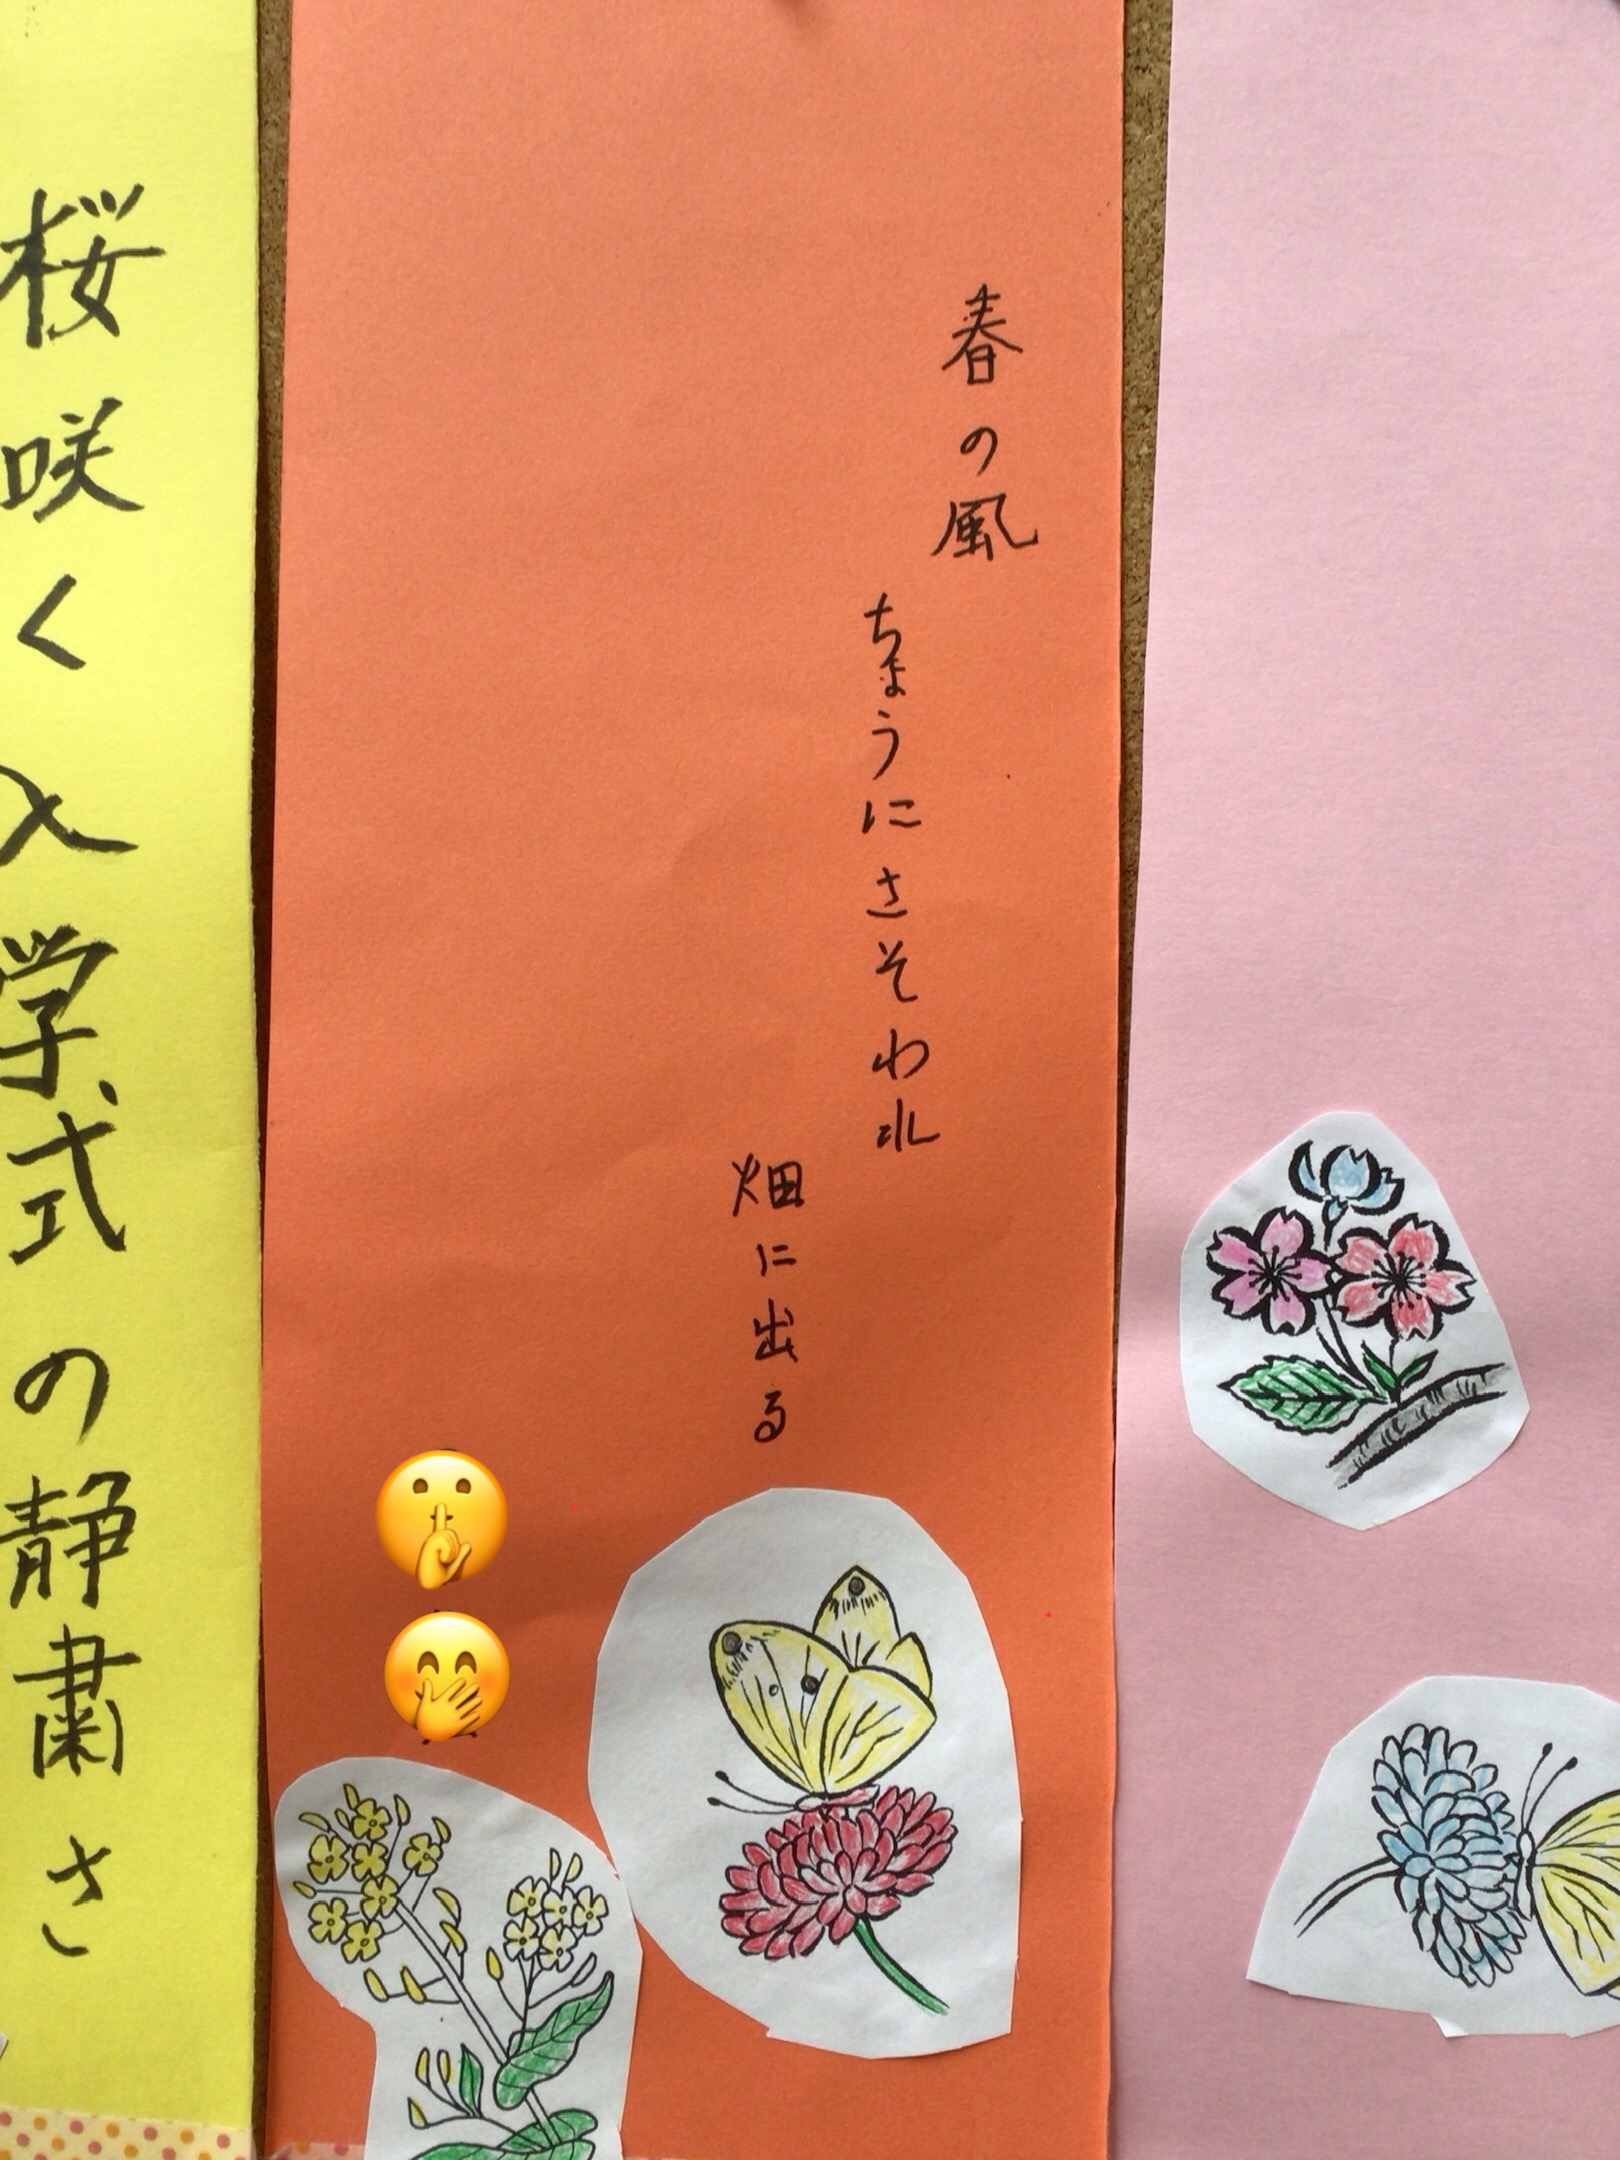 春の風
ちょうにさそわれ
畑に出る
桜咲く入学式の静粛さ